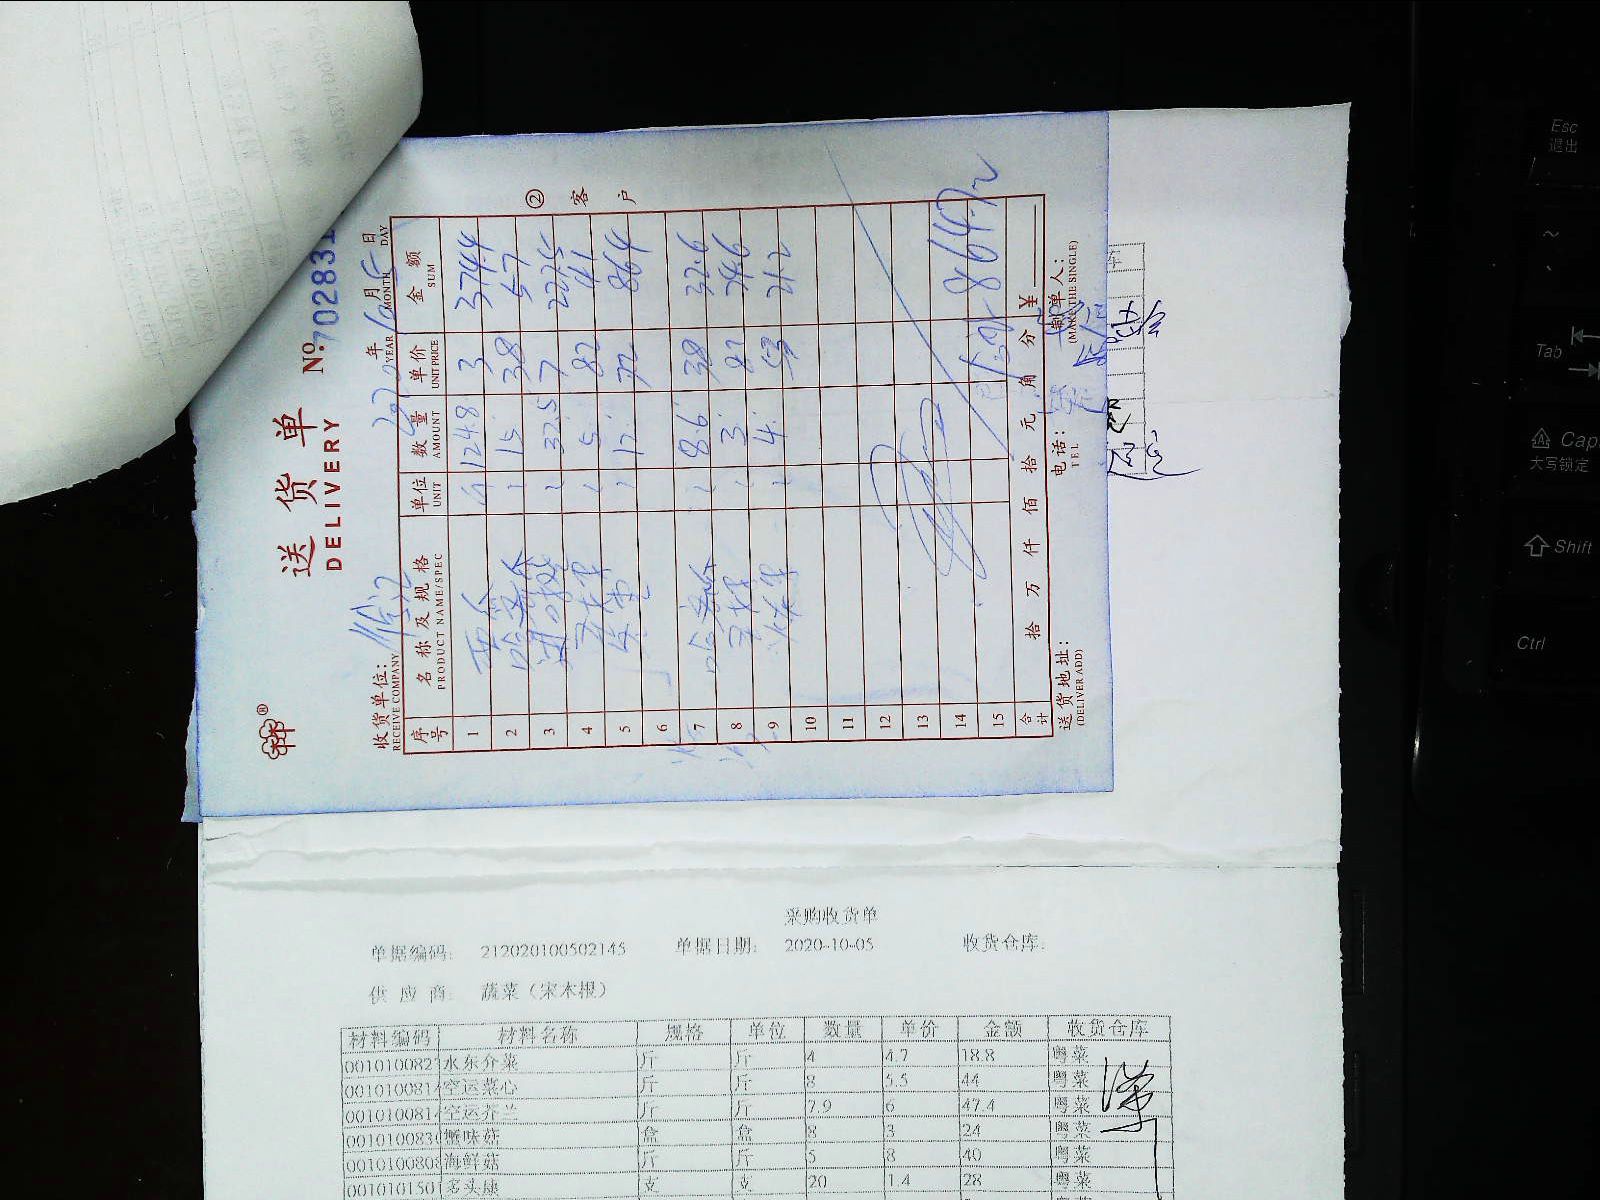 送货单
DELIVERY
No. 702831
② 客户
收货单位:
RECEIVE COMPANY
2020年 10月 5日
YEAR MONTH DAY
序号 名称及规格 单位 数量 单价 金额
PRODUCT NAME/SPEC UNIT AMOUNT UNIT PRICE SUM
1 西瓜 斤 124.8 3 374.4
2 哈密瓜 15 3.8 57
3 32.5 7 227.5
4 5 8.2 41
5 12 7.2 86.4
6
7 哈密瓜 8.6 3.8 32.6
8 3 8.2 24.6
9 火龙果 4 5.3 21.2
10
11
12
13
14 864.7
15
合计 拾 万 仟 佰 拾 元 角 分 ¥
送货地址: 电话: 制单人:
(DELIVER ADD) TEL (MAKE THE SINGLE)
采购收货单
单据编码: 212020100502145 单据日期: 2020-10-05 收货仓库:
供应商: 蔬菜（宋本根）
材料编码 材料名称 规格 单位 数量 单价 金额 收货仓库
水东介菜 斤 斤 4 4.7 18.8 粤菜
空运菜心 斤 斤 8 5.5 44 粤菜
空运芥兰 斤 斤 7.9 6 47.4 粤菜
蟹味菇 盒 盒 8 3 24 粤菜
海鲜菇 斤 斤 5 8 40 粤菜
多头康 支 支 20 1.4 28 粤菜
Esc
退出
~
Tab
Cap
大写锁定
Shift
Ctrl